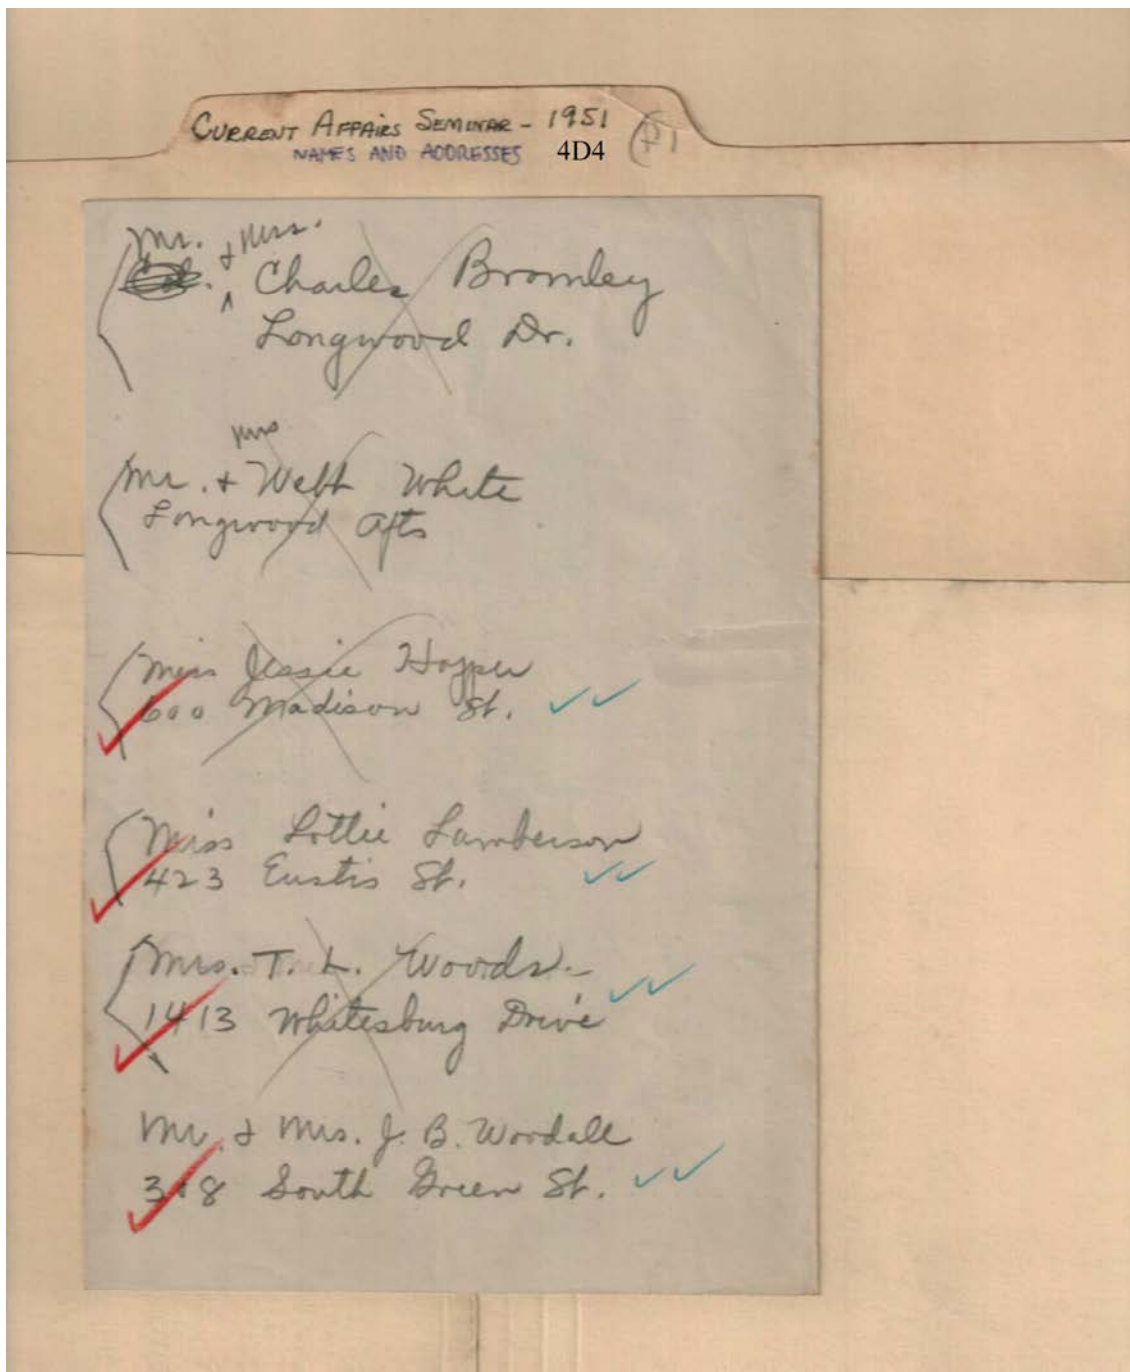 CURRENT AFFAIRS SEMINAR - 1951
NAMES AND ADDRESSES 4D4
Mr. & Mrs.
Charles Bromley
Longwood Dr.
Mrs
Mr. & Webb White
Longwood Apts
Miss Jessie Hopper
600 Madison St.
Miss Lottie Lamberson
423 Eustis St.
Mrs. T. L. Woods.-
1413 Whitesburg Drive
Mr. & Mrs. J. B. Woodall
308 South Green St.